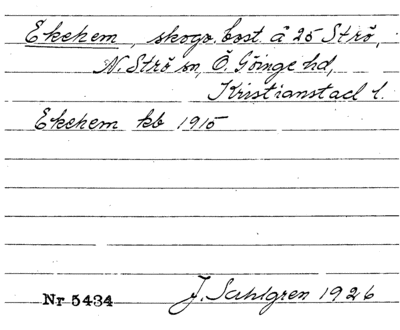 Ekehem, skogv.bost. å 25 Strö,
N. Strö sn, Ö. Göinge hd,
Kristianstad l.
Ekehem kb 1915
Nr 5434 J. Sahlgren 1926